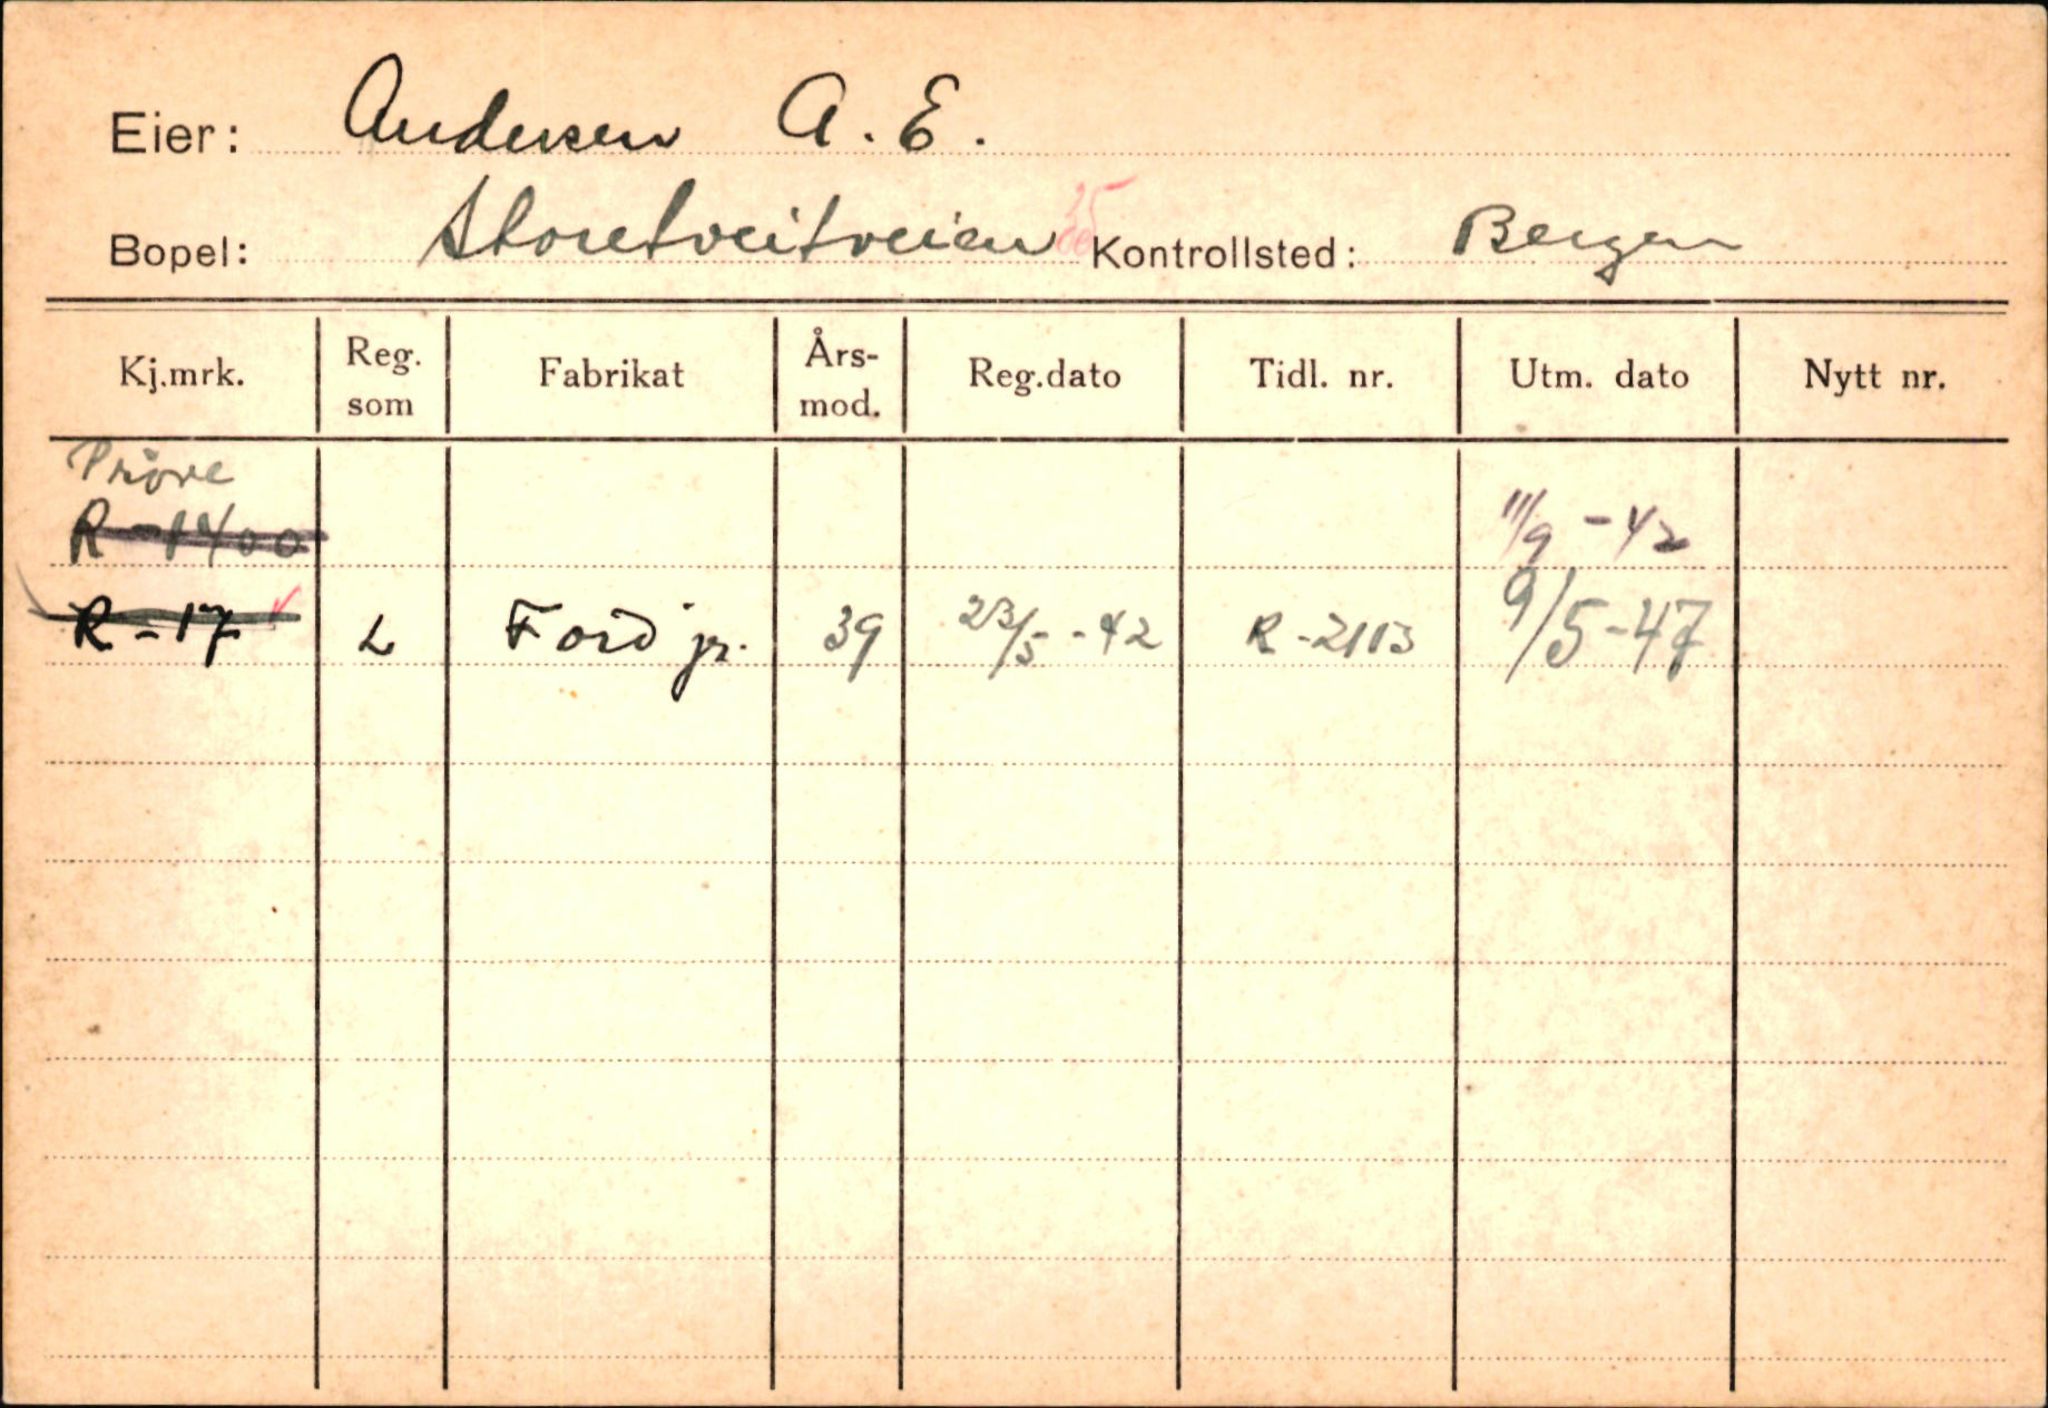 Eier: Andersen A. E.
Bopel: Storetveitveien Kontrollsted: Bergen
Kj.mrk. Reg. som Fabrikat Års- mod. Reg.dato Tidl. nr. Utm. dato Nytt nr.
Pröve
R-1400 11/9 -42
R-17 L Ford jr. 39 23/5 -42 R-2113 9/5-47